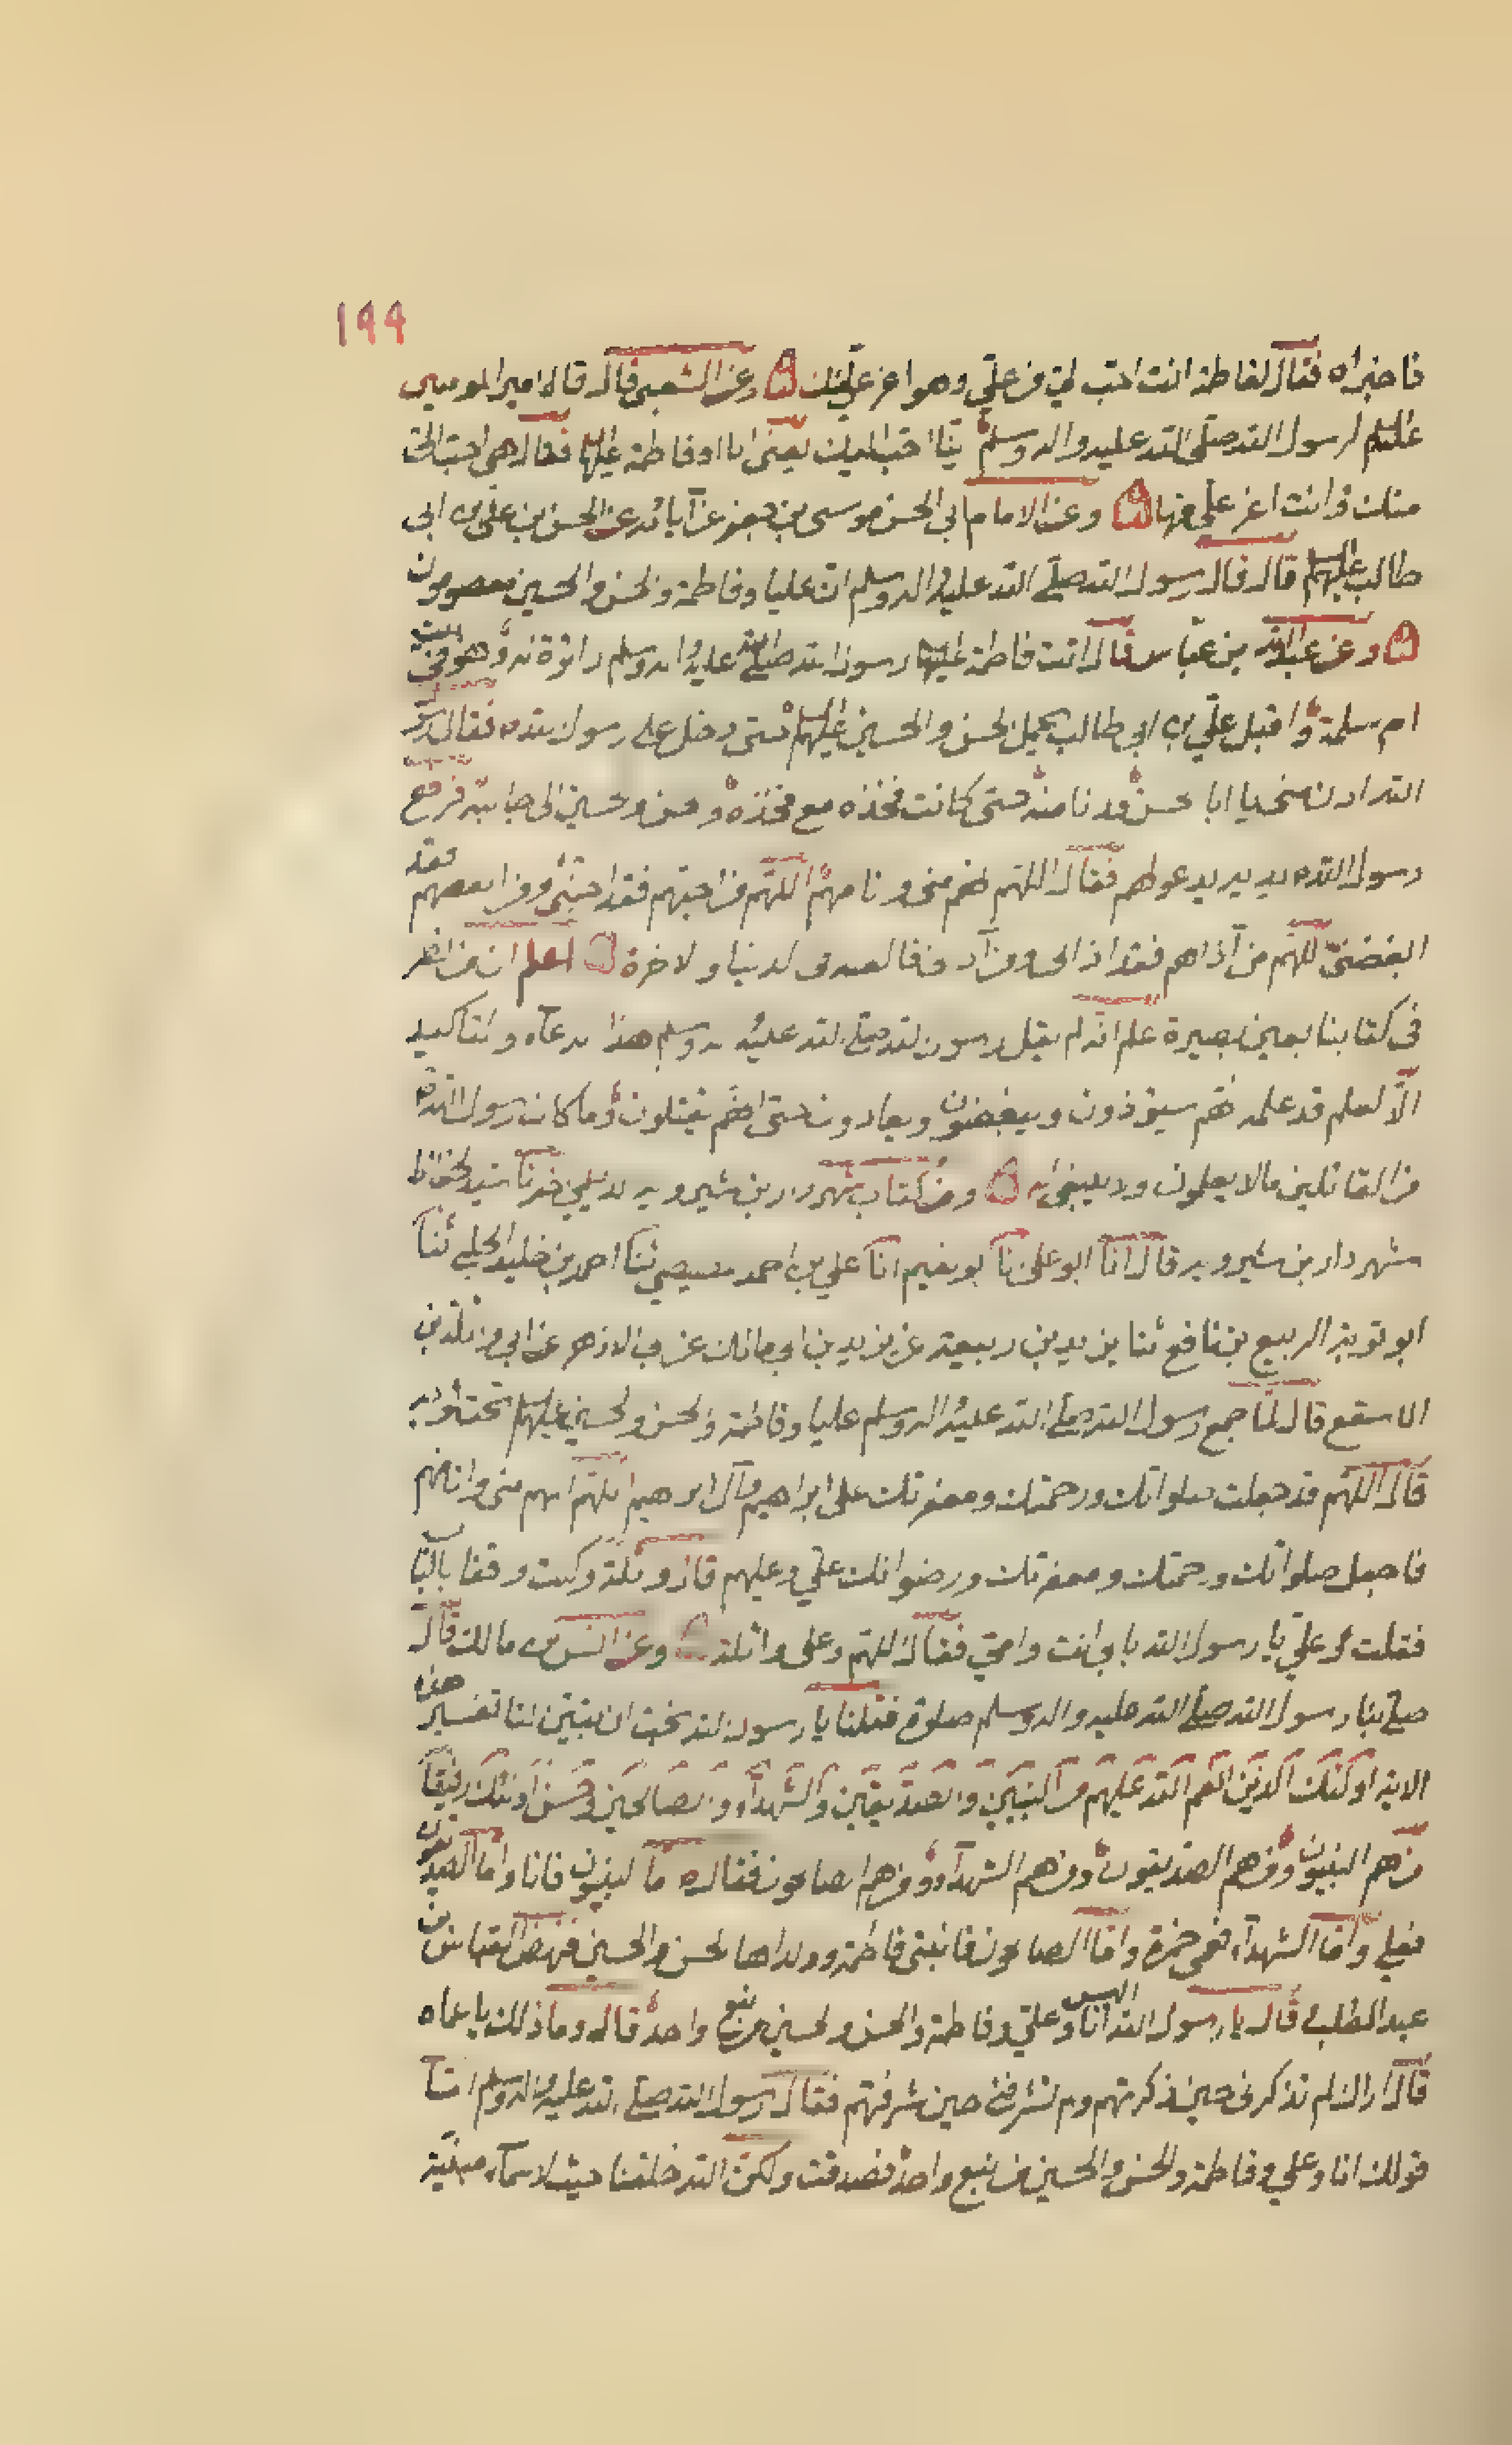 ١٩٩
فاخبراه فقال لفاطمة انت احب الي من علي وهو اعز علي منك وعن الشعبي قال قال امير المومنين
عليه السلم لرسول الله صلى الله عليه واله وسلم ايّنا احب اليك يعنى انا او فاطمة عليها السلم فقال هى احب الىّ
منك وانت اعز علىّ منها وعن الامام ابى الحسن موسى بن جعفر عن آبائه عن الحسن بن على بن ابى
طالب عليهم السلم قال قال رسول الله صلى الله عليه واله وسلم ان عليا وفاطمة والحسن والحسين معصومون
وعن عبد الله بن عباس قال اتت فاطمة عليها السلم رسول الله صلى الله عليه واله وسلم زائرة له وهو فى بيت
ام سلمة واقبل علي بن ابى طالب يحمل الحسن والحسين عليهم السلم حتى دخل على رسول الله فقال رسول
الله ادن منى يا ابا حسن فدنا منه حتى كانت فخذه مع فخذه وحسن وحسين الى جانبيه فرفع
رسول الله يديه يدعو لهم فقال اللهم انهم منى وانا منهم اللهم من احبهم فقد احبنى ومن ابغضهم فقد
ابغضنى اللهم من آذاهم فقد اذانى ومن اذانى فالعنه فى الدنيا والاخرة اعلم ان من انظر
فى كتابنا بعين بصيرة علم انه لم يقل رسول الله صلى الله عليه واله وسلم هذا الدعاء والتاكيد
الّا لعلم قد علمه انهم سيؤذون ويبغضون ويعادون حتى انهم يقتلون وما كان رسول الله
من القائلين مالا يعلمون ولا ينبغى له ومن كتاب شهردار بن شيرويه الديلمي اخبرنا سيد الحفاظ
شهردار بن شيرويه قال انا ابو على انا ابو نعيم انا علي بن احمد المصيصي ثنا احمد بن خليد الحلبي ثنا
ابو توبة الربيع بن نافع ثنا يزيد بن ربيعة عن يزيد بن ابى مالك عن ابى الازهر عن واثلة بن
الاسقع قال لما جمع رسول الله صلى الله عليه واله وسلم عليا وفاطمة والحسن والحسين عليهم السلم تحت ثوبه
قال اللهم قد جعلت صلواتك ورحمتك ومغفرتك على ابراهيم وآل ابرهيم اللهم انهم منى وانا منهم
فاجعل صلواتك ورحمتك ومغفرتك ورضوانك علي وعليهم قال واثلة وكنت واقفا بالباب
فقلت وعلي يا رسول الله بابى انت وامي فقال اللهم وعلى واثلة وعن انس بن مالك قال
صلى بنا رسول الله صلى الله عليه واله وسلم صلوة فقلنا يا رسول الله نحب ان تبين لنا تفسير هذه
الاية اولئك الذين انعم الله عليهم من النبيين والصديقين والشهداء والصالحين وحسن اولئك رفيقا
من هم النبيون ومن هم الصديقون ومن هم الشهداء ومن هم الصالحون فقال اما النبيون فانا واما الصديقون
فعلي واما الشهداء فعمى حمزة واما الصالحون فابنتى فاطمة وولداها الحسن والحسين فنهض العباس بن
عبد المطلب قال يا رسول الله اليس انا وعلي وفاطمة والحسن والحسين من نبع واحد قال وما ذلك يا عماه
قال اراك لم تذكرنى حين ذكرتهم ولم تشرفنى حين شرفتهم فقال رسول الله صلى الله عليه واله وسلم امّا
قولك انا وعلي وفاطمة والحسن والحسين من نبع واحد فصدقت ولكن الله خلقنا حيث لا سماء مبنية